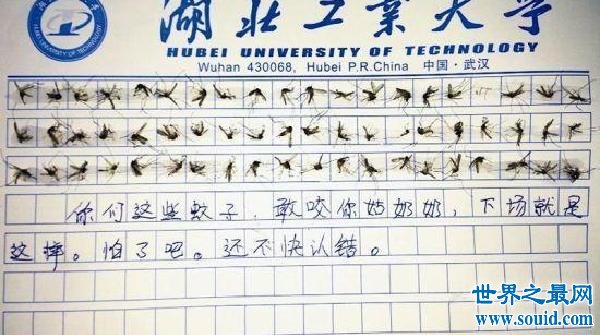 湖北工业大学
HUBEI UNIVERSITY OF TECHNOLOGY
Wuhan 430068, Hubei P.R.China 中国·武汉
你们这些蚊子,敢咬你姑奶奶,下场就是
这样。怕了吧。还不快认错。
世界之最网
www.souid.com